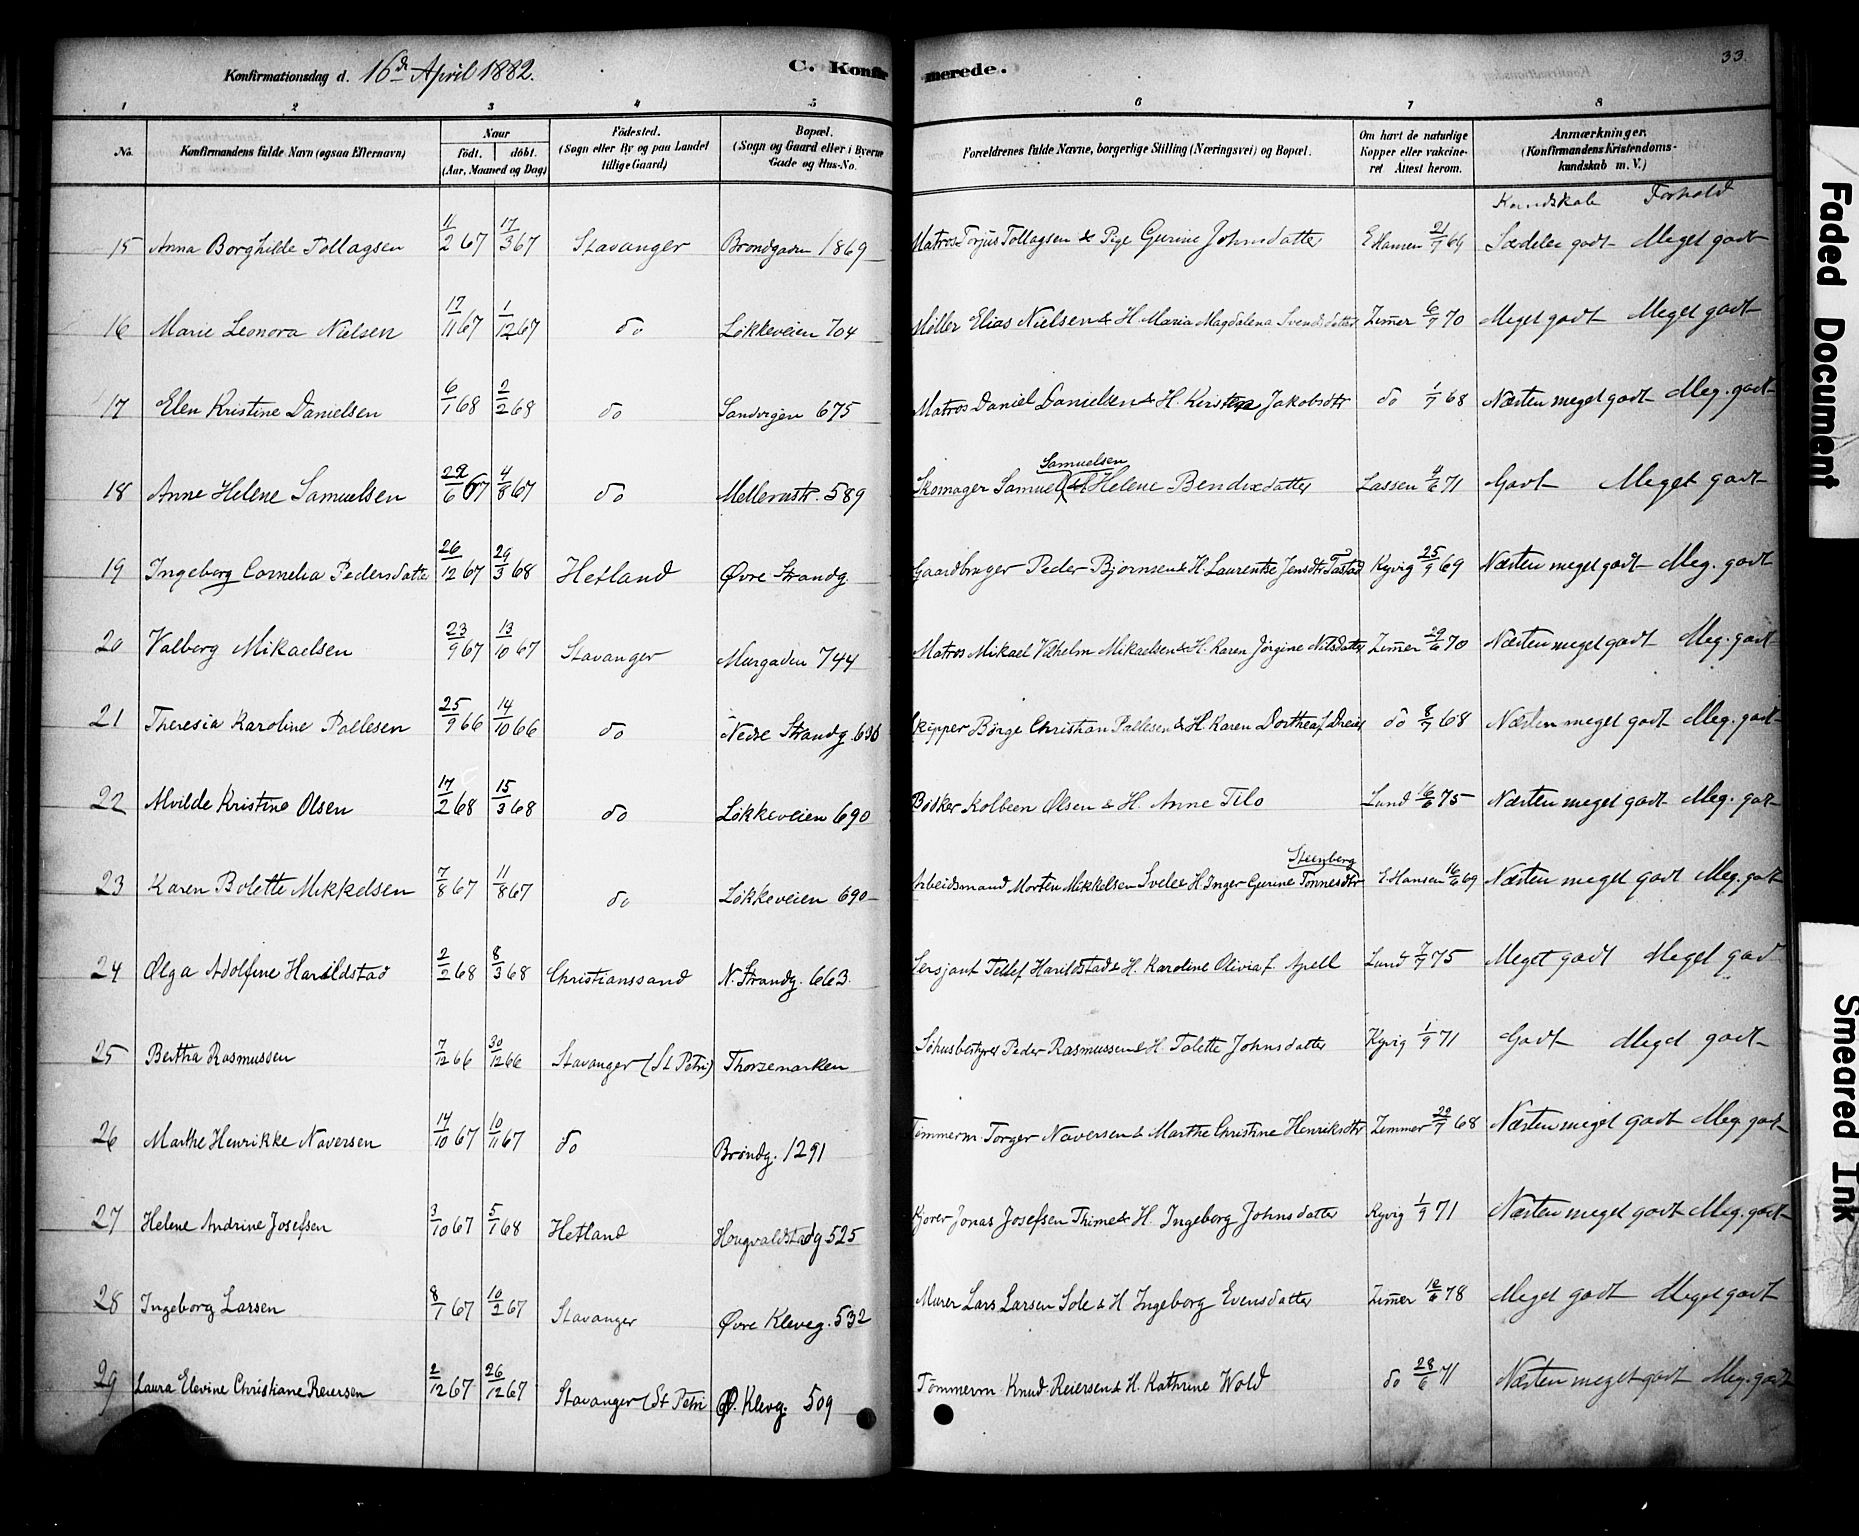 Konfirmationsdag d. 16de April 1882. C. Konfirmerede. 33
1 2 3 4 5 6 7 8
No. Konfirmandens fulde Navn (ogsaa Efternavn) Naar født. døbt. (Aar, Maaned og Dag) Fødested. (Sogn eller By og paa Landet tillige Gaard) Bopæl. (Sogn og Gaard eller i Byerne Gade og Hus-No. Forældrenes fulde Navne, borgerlige Stilling (Næringsvei) og Bopæl. Om havt de naturlige Kopper eller vakcineret Attest herom. Anmærkninger. (Konfirmandens Kristendomskundskab m. V.)
Kundskab Forhold
15 Anna Borghilde Tollagsen 11/2 67 17/3 67 Stavanger Brøndgaden 1869 Matros Torjus Tollagsen & Pige Gurine Johnsdatter E Hansen 21/7 69 Særdeles godt Meget godt
16 Marie Leonora Nielsen 17/11 67 1/12 67 do Løkkeveien 704 Møller Elias Nielsen & H. Maria Magdalena Svendsdatter Zimer 6/7 70 Meget godt Meget godt
17 Elen Kristine Danielsen 6/1 68 2/2 68 do Sandvigen 675 Matros Daniel Danielsen & H. Kirstine Jakobsdtr do 1/7 68 Næsten meget godt Meg. godt
18 Anne Helene Samuelsen 29/6 67 4/8 67 do Mellemstr. 589 Skomager Samuel Samuelsen & H Helene Bendixdatter Lassen 4/6 71 Godt Meget godt
19 Ingeborg Cornelia Pedersdatter 26/12 67 29/3 68 Hetland Øvre Strandg. Gaardbruger Peder Bjørnsen & H. Laurentse Jensdtr Tastad Kyvig 25/9 69 Næsten meget godt Meg. godt
20 Valborg Mikaelsen 23/9 67 13/10 67 Stavanger Murgaden 744 Matros Mikael Vilhelm Mikaelsen & H. Karen Jørgine Nilsdatter Zimer 29/6 70 Næsten meget godt Meg. godt
21 Theresia Karoline Pallesen 25/9 66 14/10 66 do Nedre Strandg. 636 Skipper Børge Christian Pallesen & H. Karen Dorthea f. Dreier do 8/7 68 Næsten meget godt Meg. godt
22 Alvilde Kristine Olsen 17/2 68 15/3 68 do Løkkeveien 690 Bødker Kolbeen Olsen & H. Anne Tilo Lund 16/6 75 Næsten meget godt Meg. godt
23 Karen Bolette Mikkelsen 7/8 67 11/8 67 do Løkkeveien 690 Arbeidsmand Morten Mikkelsen Svele & H. Inger Gurine Tønnesdtr Steenberg E. Hansen 16/6 69 Næsten meget godt Meg. godt
24 Olga Adolfine Harildstad 2/2 68 8/3 68 Christianssand N. Strandg. 663 Sersjant Tellef Harildstad & H. Karoline Olivia f. Apell Lund 7/7 75 Meget godt Meget godt
25 Bertha Rasmussen 7/12 66 30/12 66 Stavanger (St Petri) Thorsemarken Peder Rasmussen & H. Tolette Johnsdatter Kyvig 1/9 71 Godt Meget godt
26 Marthe Henrikke Naversen 14/10 67 10/11 67 do Brøndg. 1291 Tømmerm Torger Naversen & Marthe Christine Henriksdtr Zimmer 29/7 68 Næsten meget godt Meg. godt
27 Helene Andrine Josefsen 3/10 67 5/1 68 Hetland Hougvaldstadg 525 Kjører Jonas Josefsen Thime & H. Ingeborg Johnsdatter Kyvig 1/9 71 Næsten meget godt Meg. godt
28 Ingeborg Larsen 8/1 67 10/2 67 Stavanger Øvre Kleveg. 532 Murer Lars Larsen Sole & H Ingeborg Evensdatter Zimer 19/6 78 Meget godt Meget godt
29 Laura Elevine Christiane Reiersen 2/12 67 26/12 67 Stavanger (St Petri Ø. Klevg. 509 Tømmerm Knud Reiersen & H. Kathrine Wold do 28/6 71 Næsten meget godt Meg. godt
Faded Document
Smeared Ink